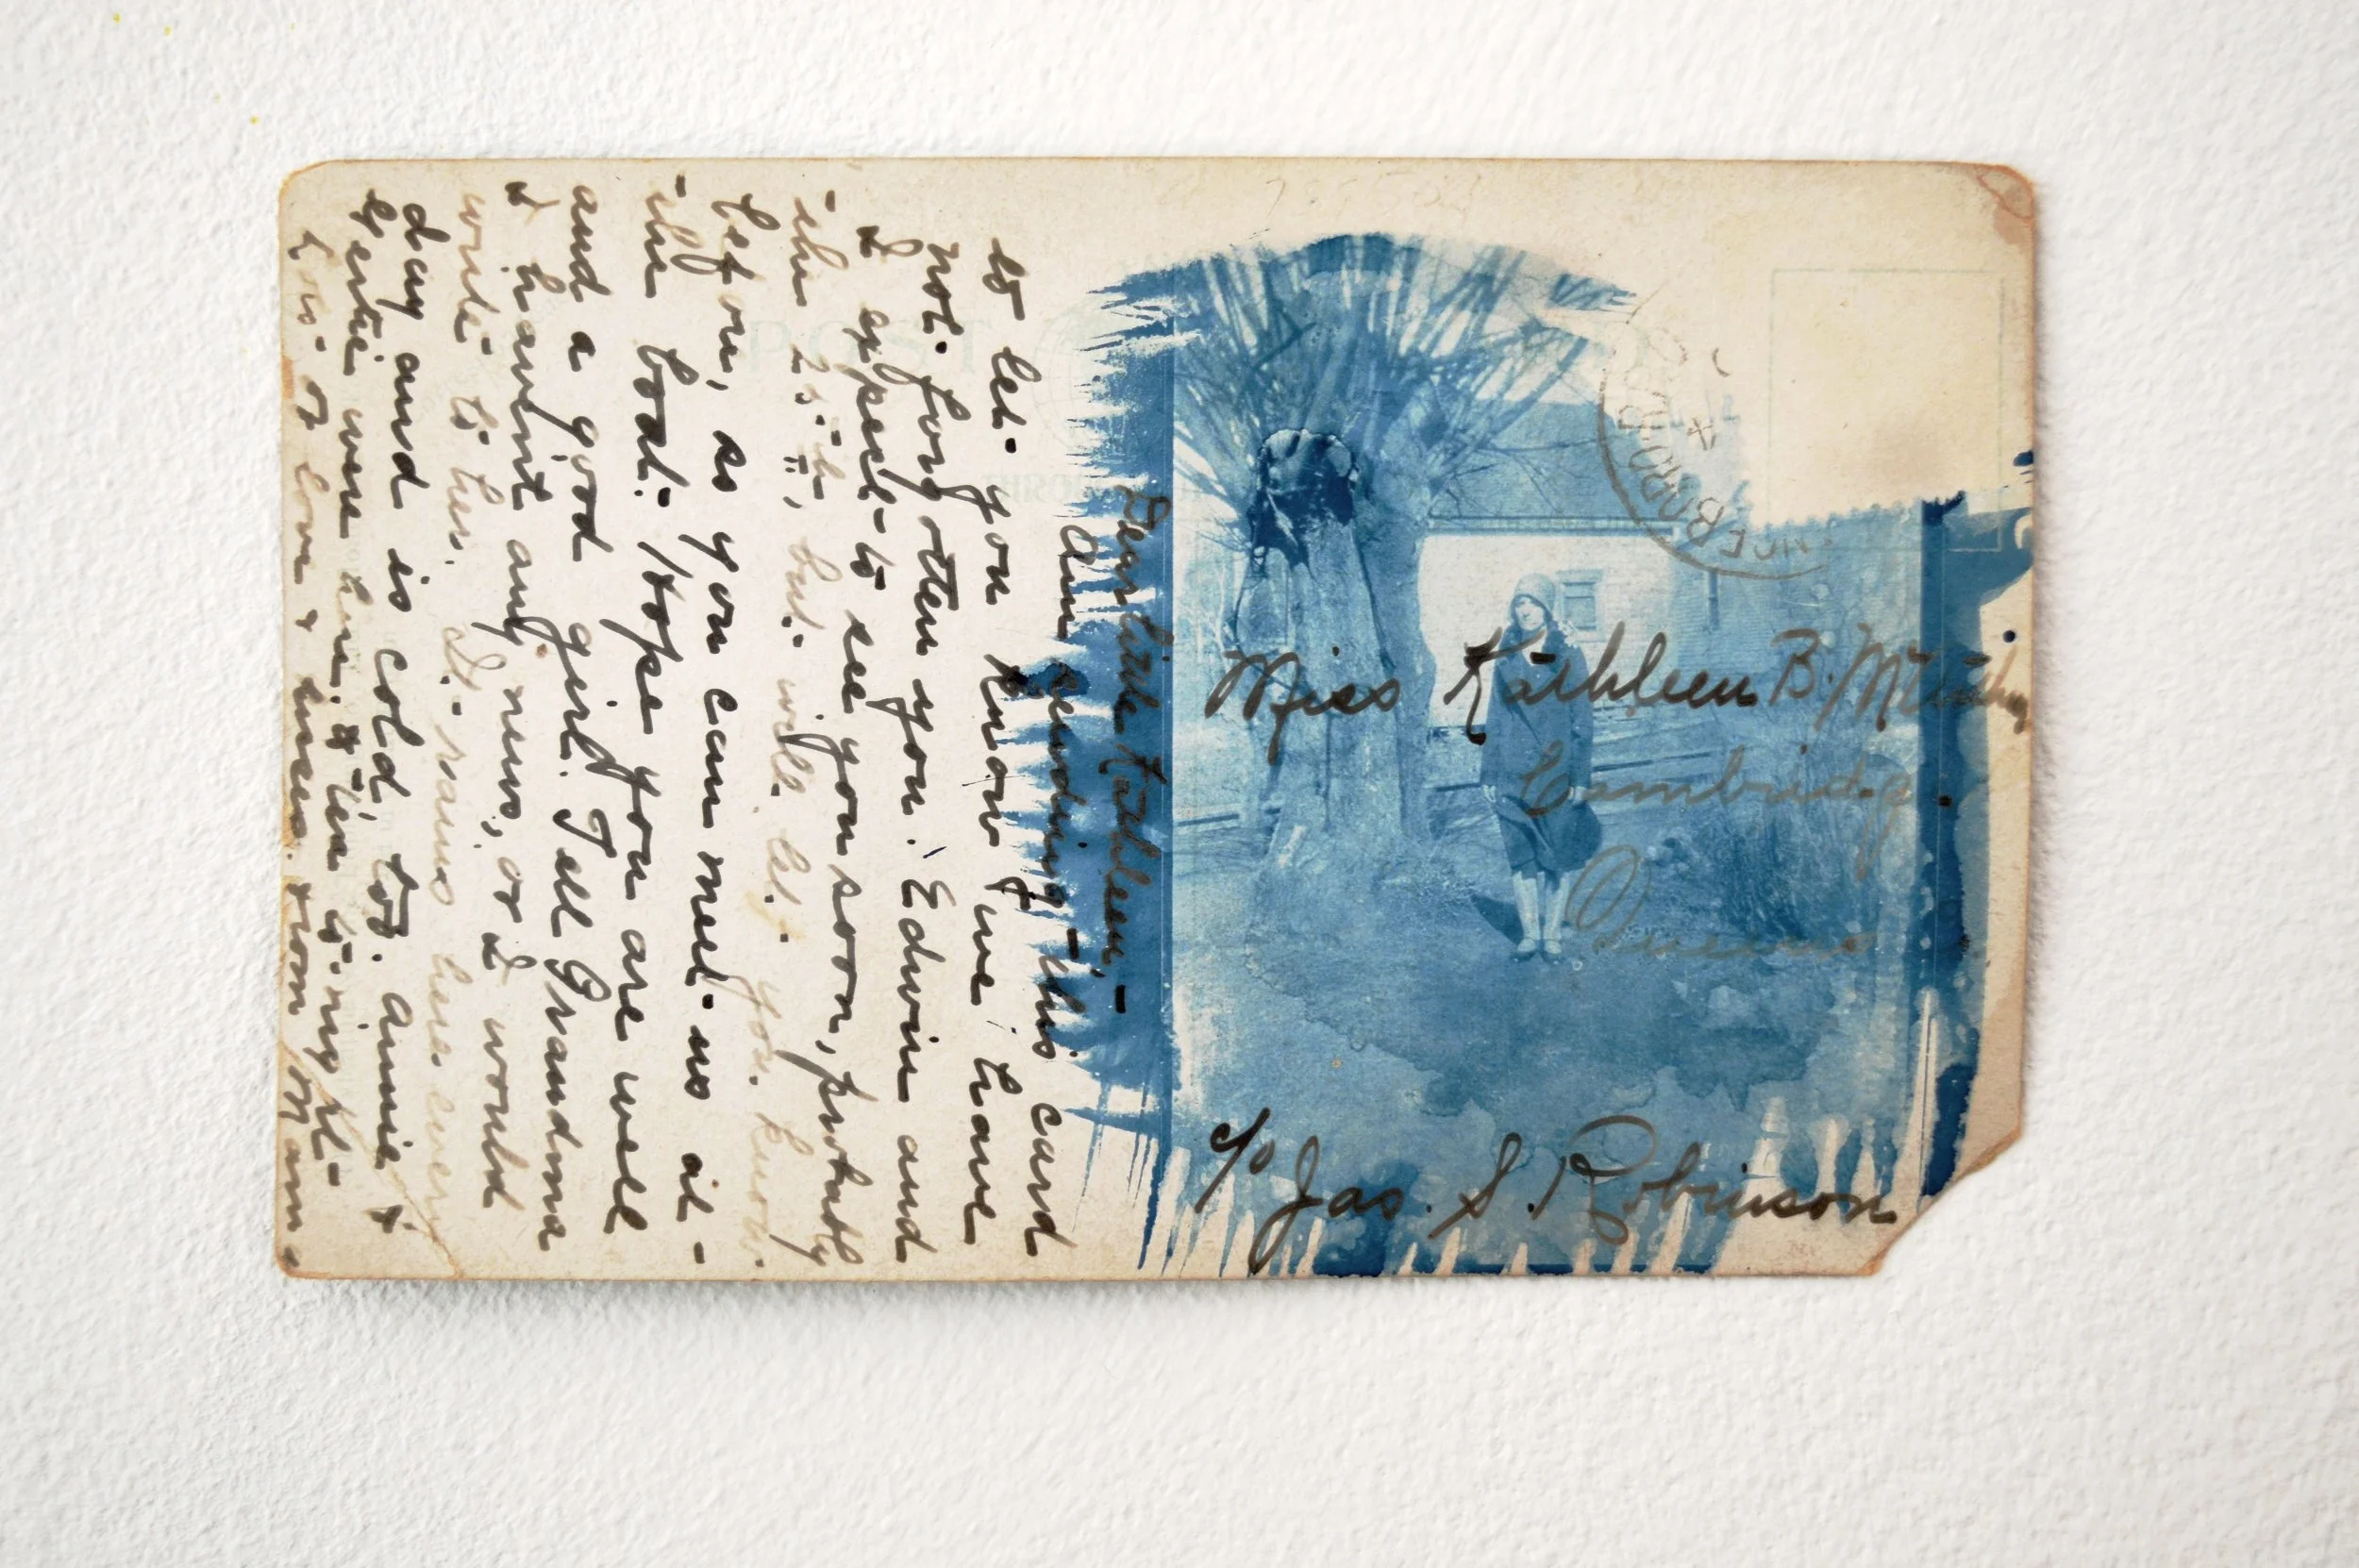 POST
Dear little Kathleen,-
Am sending this card
to let you know we have
not forgotten you. Edwin and
I expect to see you soon, probably
the 25th, but will let you know
before, so you can meet us at
the boat. Hope you are well
and a good girl. Tell Grandma
I haven't any news, or I would
write to her. It rains here every
day and is cold, too. Annie &
Gertie were here
Lots of love & kisses from Mama
Miss Kathleen B.
Cambridge
Queens
c/o Jas. S. Robinson